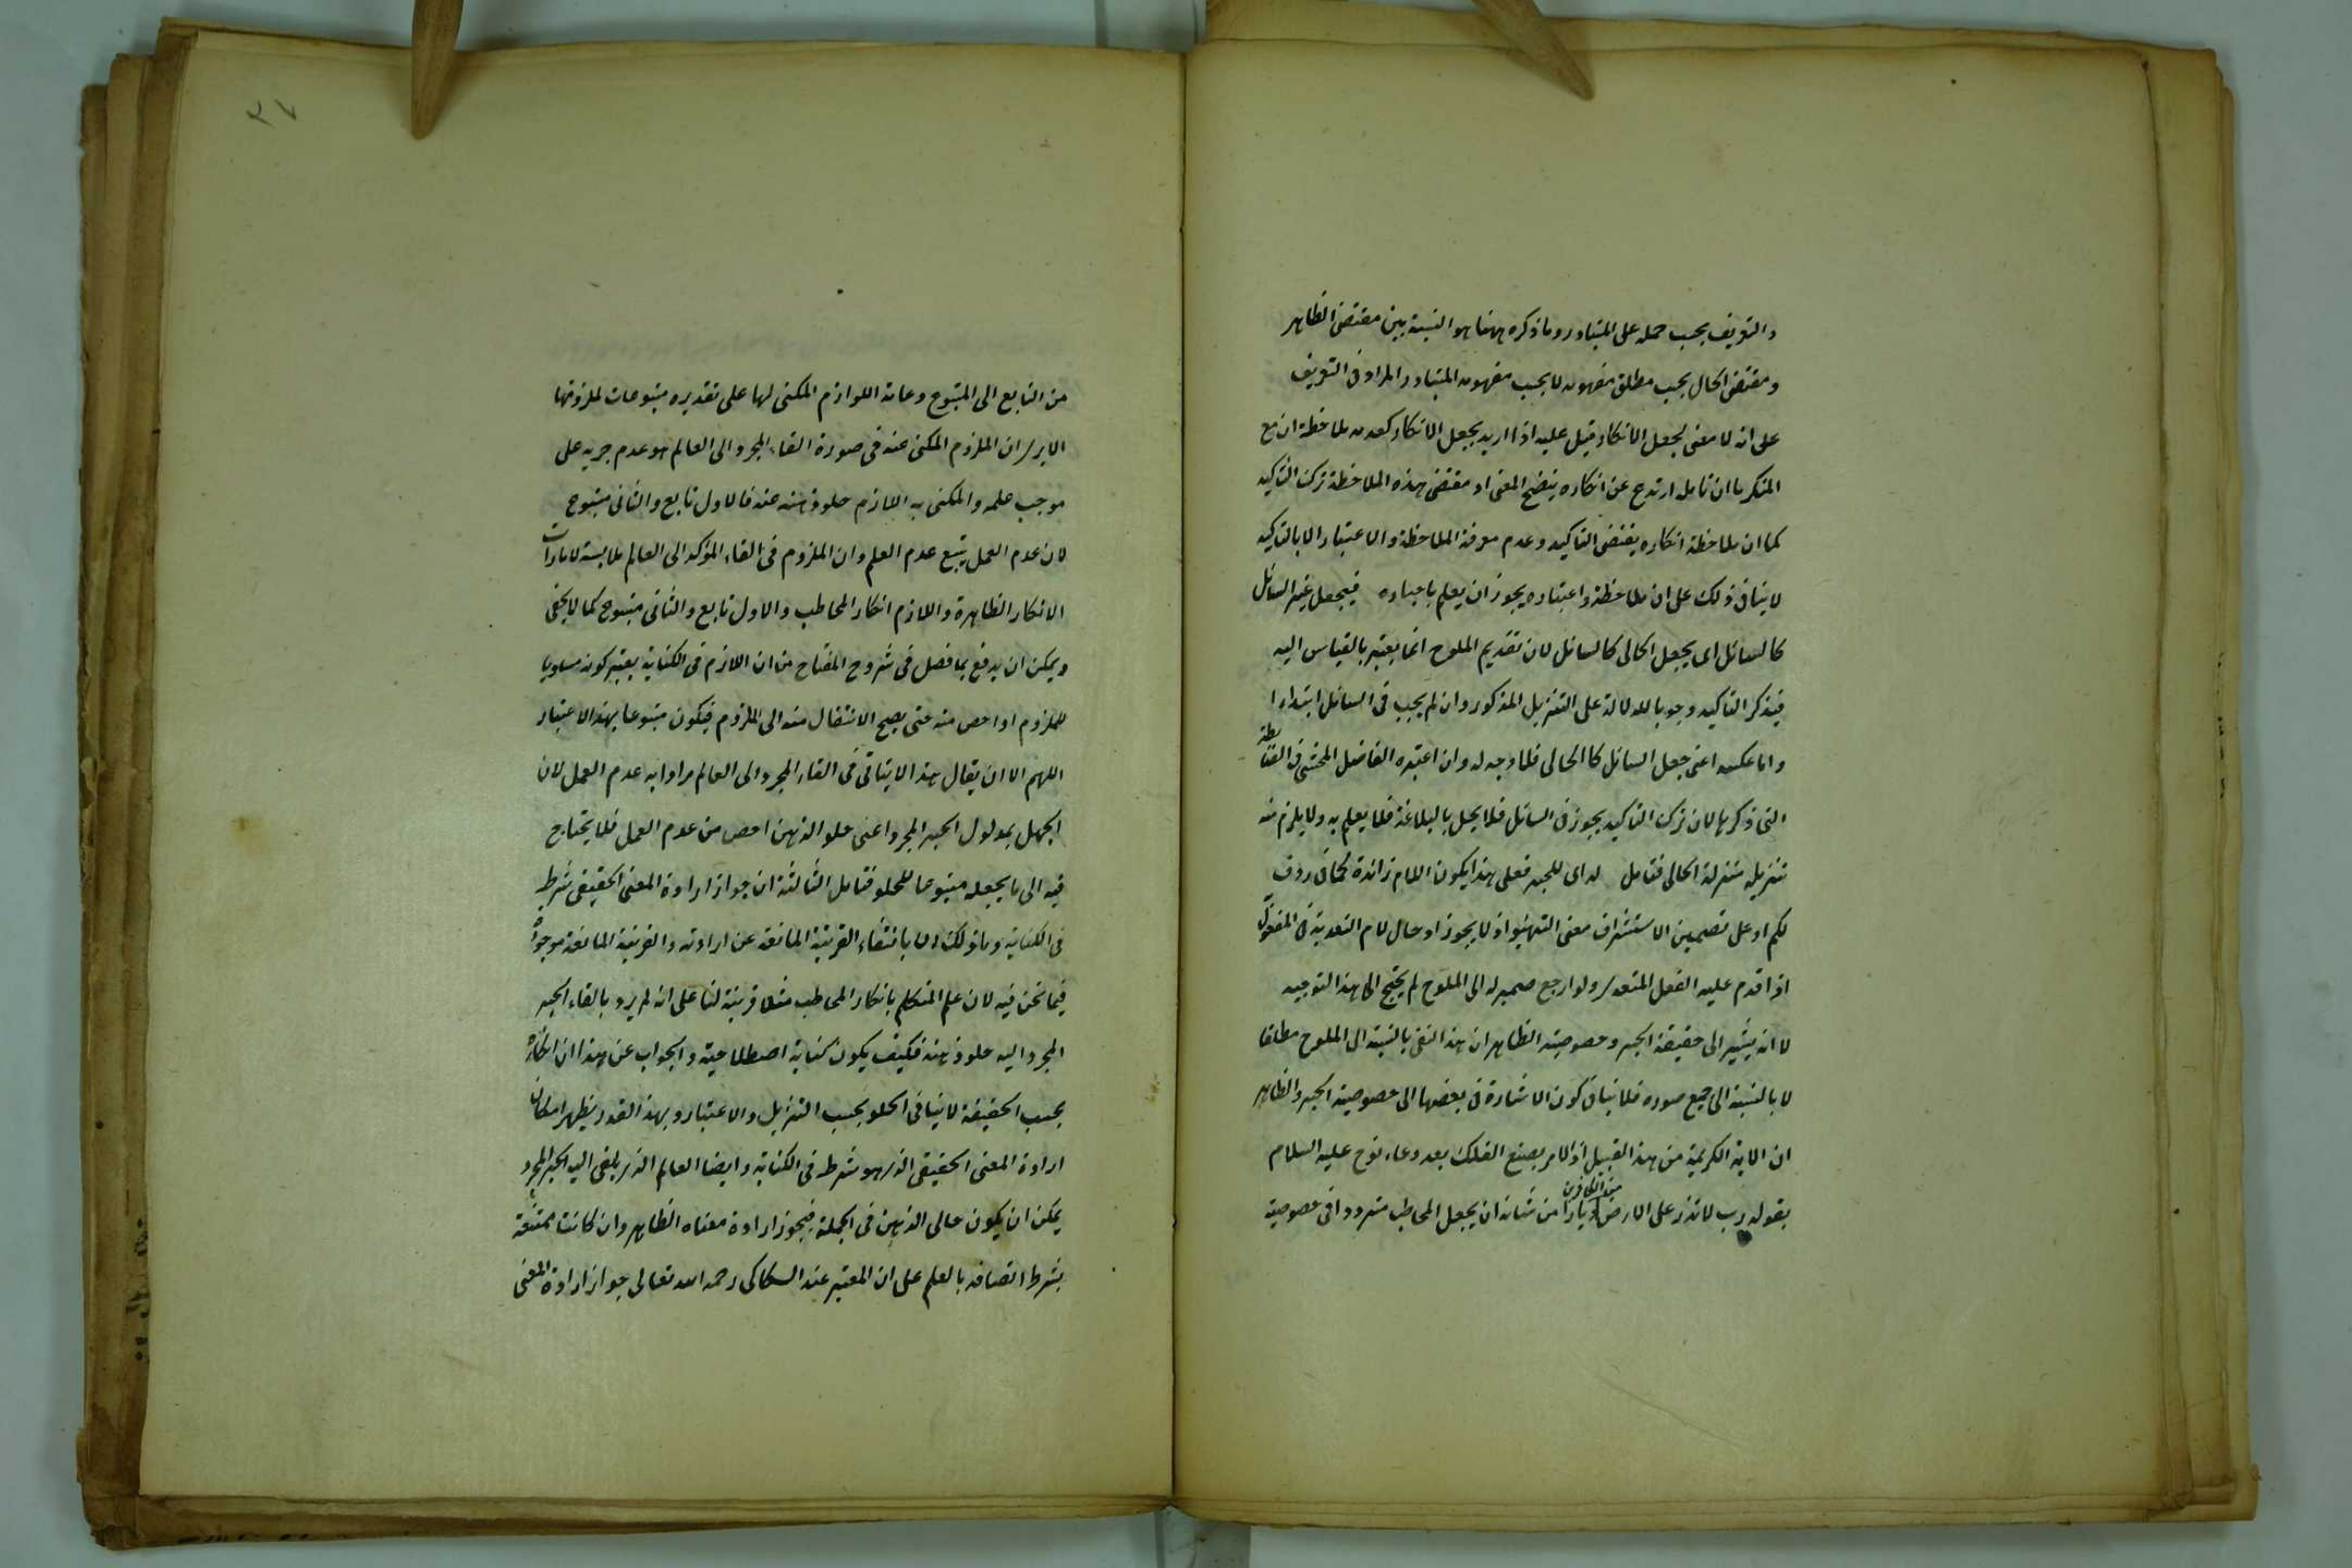 والتعريف يجب حمله على المتبادر وما ذكره ههنا هو النسبة بين مقتضى الظاهر
ومقتضى الحال بحسب مطلق مفهومه لا بحسب مفهومه المتبادر المراد فى التعريف
على انه لا معنى لجعل الانكار قيل عليه اذا اريد بجعل الانكار كعدمه ملاحظة ان مع
المنكر ما ان تامله ارتدع عن انكاره يتضح المعنى اذ مقتضى هذه الملاحظة ترك التاكيد
كما ان ملاحظة انكاره يقتضى التاكيد وعدم معرفة الملاحظة والاعتبار الا بالتاكيد
لا ينافى ذلك على ان ملاحظة واعتباره يجوز ان يعلم باخباره فيجعل غير السائل
كالسائل اى يجعل الخالى كالسائل لان تقديم الملوح انما يعتبر بالقياس اليه
فيذكر التاكيد وجوبا للدلالة على التنزيل المذكور وان لم يجب فى السائل ابتداء
واما عكسه اعنى جعل السائل كالخالى فلا وجه له وان اعتبره الفاضل المحشى فى الضابطة
التى ذكرها لان ترك التاكيد يجوز فى السائل فلا يخل بالبلاغة فلا يعلم به ولا يلزم منه
تنزيله منزلة الخالى فتامل له اى للخبر فعلى هذا يكون اللام زائدة كما فى ردف
لكم او على تضمين الاستشراف معنى التهيؤ اذ لا يجوز ادخال لام التعدية فى المفعول
اذا قدم عليه الفعل المتعدى ولو ارجع ضميره له الى الملوح لم يحتج الى هذا التوجيه
لا انه يشير الى حقيقة الخبر وخصوصيته الظاهر ان هذا النفى بالنسبة الى الملوح مطلقا
لا بالنسبة الى جميع صوره فلا ينافى كون الاشارة فى بعضها الى خصوصية الخبر والظاهر
ان الاية الكريمة من هذا القبيل اذ الامر بصنع الفلك بعد دعاء نوح عليه السلام
بقوله رب لا تذر على الارض من الكافرين ديارا من شانه ان يجعل المخاطب مترددا فى خصوصية
٣٧
من التابع الى المتبوع وعامة اللوازم المكنى لها على تقديره متبوعات لملزوماتها
الا يرى ان الملزوم المكنى عنه فى صورة القاء المجرد الى العالم هو عدم جريه على
موجب علمه والمكنى به اللازم خلو ذهنه عنه فالاول تابع والثانى متبوع
لان عدم العمل يتبع عدم العلم وان الملزوم فى القاء المؤكد الى العالم ملابسة لامارات
الانكار الظاهرة واللازم انكار المخاطب والاول تابع والثانى متبوع كما لا يخفى
ويمكن ان يدفع بما فصل فى شروح المفتاح من ان اللازم فى الكناية يعتبر كونه مساويا
للملزوم او اخص منه حتى يصح الانتقال منه الى الملزوم فيكون متبوعا بهذا الاعتبار
اللهم الا ان يقال هذا لا يتاتى فى القاء المجرد الى العالم مرادا به عدم العمل لان
الجهل بمدلول الخبر المجرد اعنى خلو الذهن اخص من عدم العمل فلا يحتاج
فيه الى ما يجعله متبوعا للخلو فتامل الثالثة ان جواز ارادة المعنى الحقيقى شرط
فى الكناية وما ذلك الا بانتفاء القرينة المانعة عن ارادته والقرينة المانعة موجودة
فيما نحن فيه لان علم المتكلم بانكار المخاطب مثلا قرينة لنا على انه لم يرد بالقاء الخبر
المجرد اليه خلو ذهنه فكيف يكون كناية اصطلاحية والجواب عن هذا ان انكاره
بحسب الحقيقة لا ينافى الخلو بحسب التنزيل والاعتبار وبهذا القدر يظهر امكان
ارادة المعنى الحقيقى الذى هو شرط فى الكناية وايضا العالم الذى يلقى اليه الخبر المجرد
يمكن ان يكون خالى الذهن فى الجملة فيجوز ارادة معناه الظاهر وان كانت ممتنعة
بشرط اتصافه بالعلم على ان المعتبر عند السكاكى رحمه الله تعالى جواز ارادة المعنى